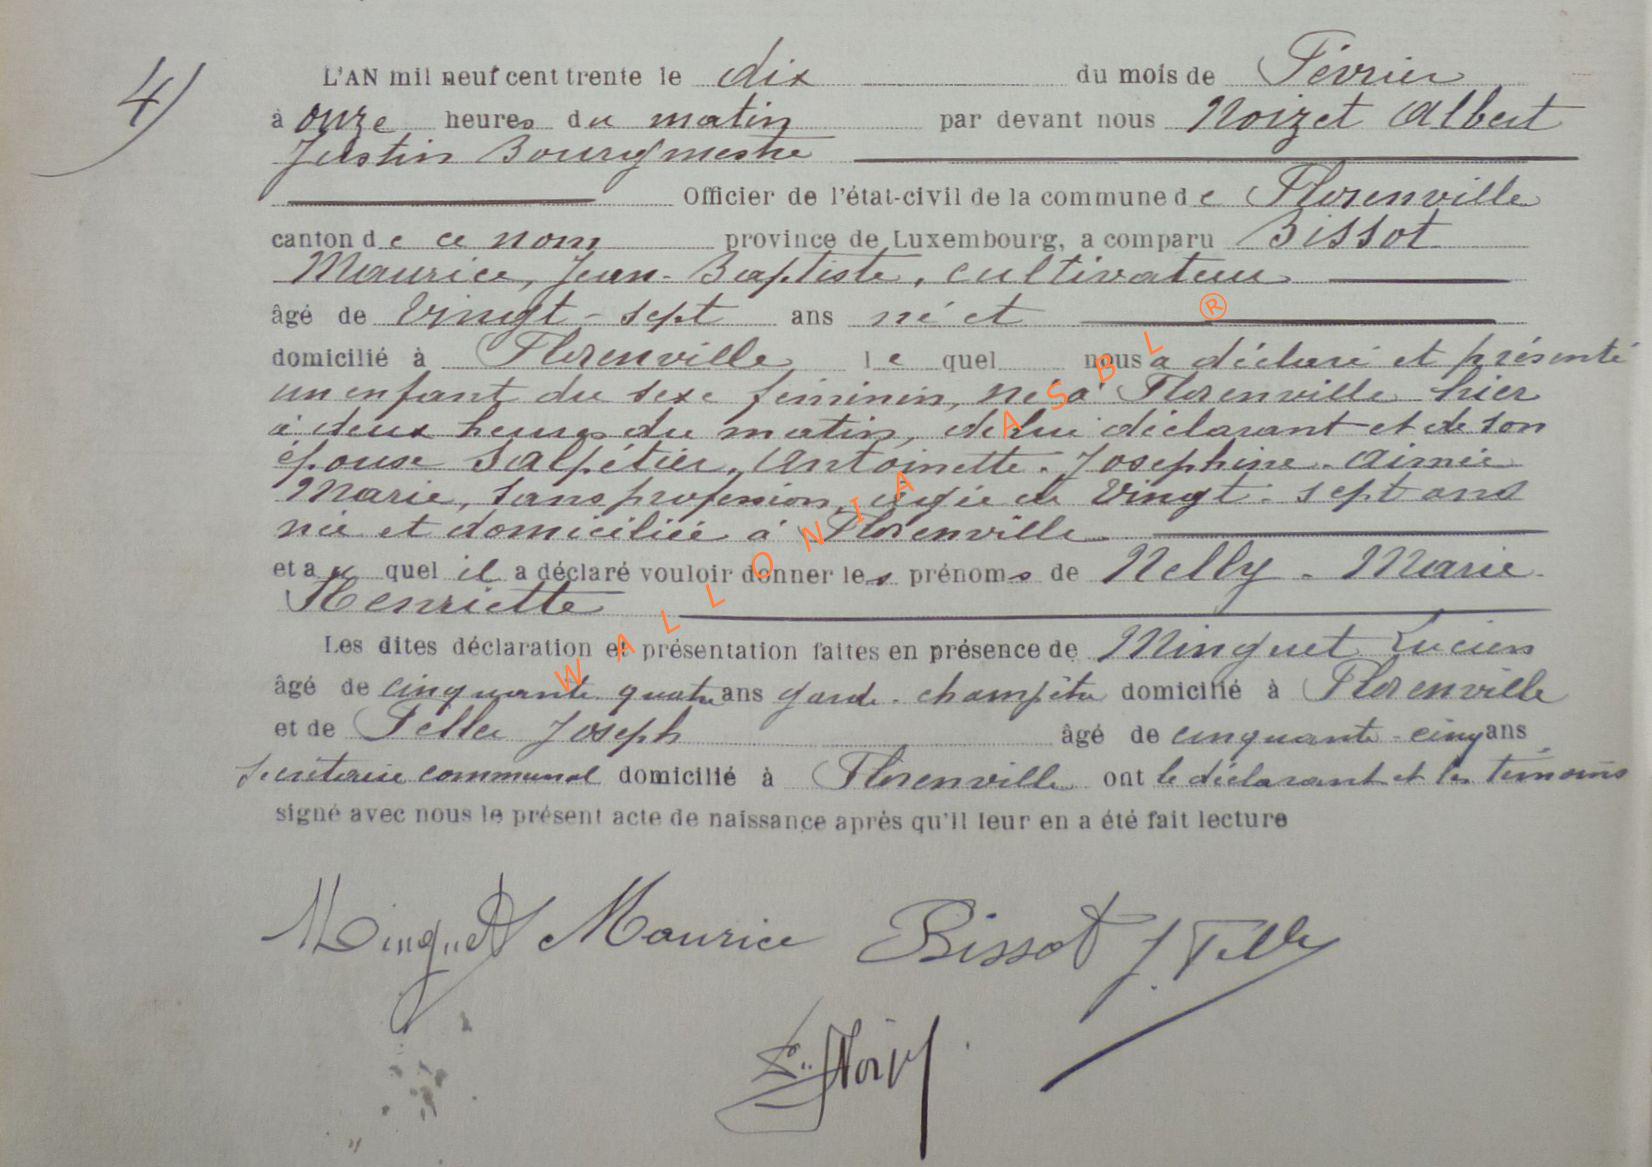 4)
L'AN mil neuf cent trente le dix du mois de Février
à onze heures du matin par devant nous Noizet Albert
Justin Bourgmestre
Officier de l'état-civil de la commune de Florenville
canton de ce nom province de Luxembourg, a comparu Bissot
Maurice, Jean-Baptiste, cultivateur
âgé de Vingt-sept ans né et
domicilié à Florenville lequel nous a déclaré et présenté
un enfant du sexe féminin, né à Florenville hier
à deux heures du matin, de lui déclarant et de son
épouse Salpétier, Antoinette. Josephine. Aimée
Marie, sans profession, agée de Vingt-sept ans
née et domiciliée à Florenville
et auquel il a déclaré vouloir donner les prénoms de Nelly-Marie-
Henriette
Les dites déclaration et présentation faites en présence de Minguet Lucien
âgé de cinquante quatre ans garde-champêtre domicilié à Florenville
et de Feller Joseph âgé de cinquante-cinq ans
secrétaire communal domicilié à Florenville ont le déclarant et les témoins
signé avec nous le présent acte de naissance après qu'il leur en a été fait lecture
Minguet Maurice Bissot J. Feller
Noizet
WALLONIA ASBL ®